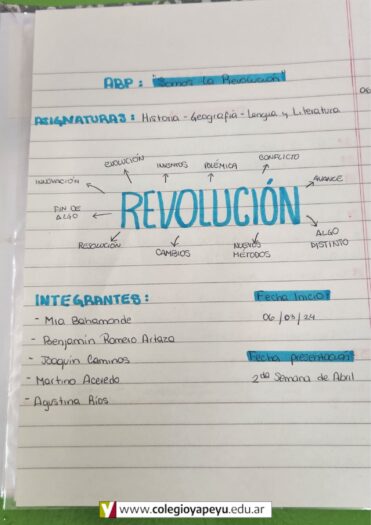 ABP: "Somos la Revolución"
ASIGNATURAS: Historia - Geografía - Lengua y Literatura
EVOLUCIÓN INVENTOS POLÉMICA CONFLICTO
INNOVACIÓN AVANCE
FIN DE ALGO
REVOLUCIÓN
RESOLUCIÓN CAMBIOS NUEVOS MÉTODOS ALGO DISTINTO
INTEGRANTES: Fecha Inicio:
- Mia Bahamonde 06/03/24
- Benjamin Romero Artaza
- Joaquin Caminos Fecha presentación
- Martino Acevedo 2da Semana de Abril
- Agustina Ríos
www.colegioyapeyu.edu.ar